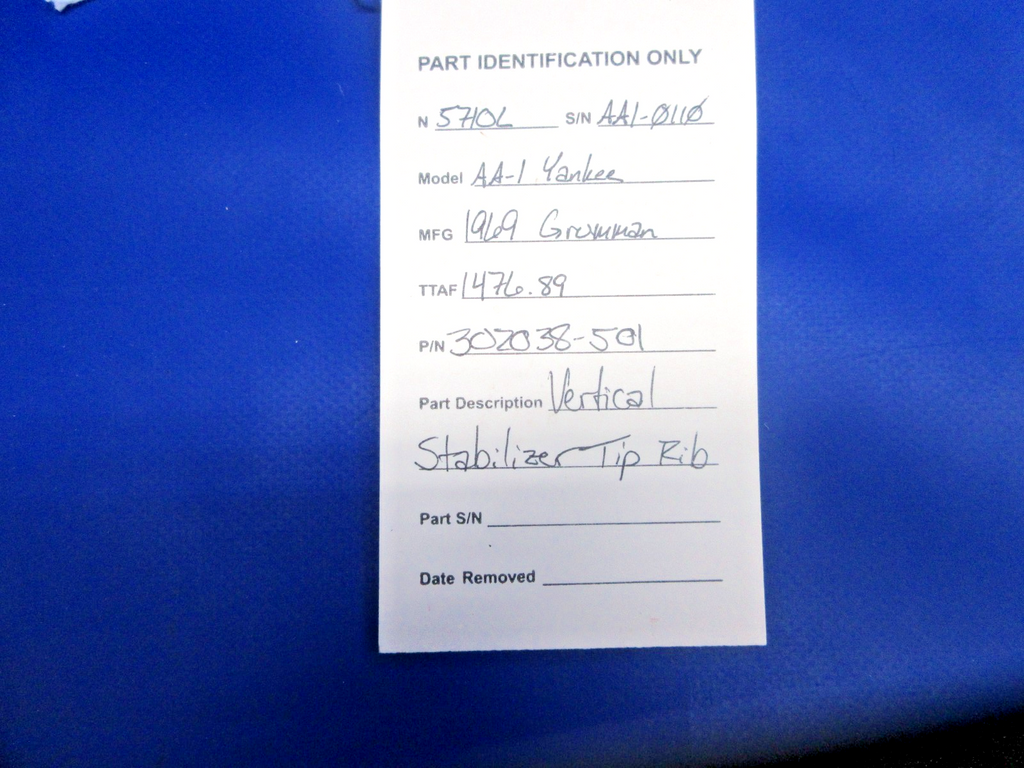 PART IDENTIFICATION ONLY
N 5710L S/N AA1-0110
Model AA-1 Yankee
MFG 1969 Grumman
TTAF 1476.89
P/N 302038-501
Part Description Vertical
Stabilizer Tip Rib
Part S/N
Date Removed